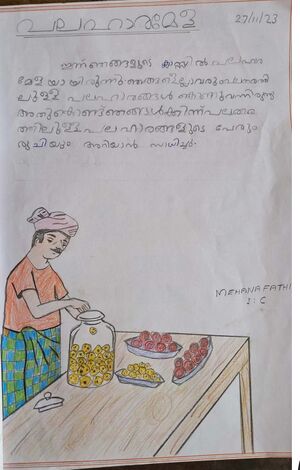 പലഹാരമേള
27/11/23
ഇന്ന് ഞങ്ങളുടെ ക്ലാസ്സിൽ പലഹാര
മേള യായിരുന്നു. ഞങ്ങളെല്ലാവരും പലതരത്തി
ലുള്ള പലഹാരങ്ങൾ കൊണ്ടുവന്നിരുന്നു
അതുകൊണ്ട് ഞങ്ങൾക്കിന്ന് പലതര
ത്തിലുള്ള പലഹാരങ്ങളുടെ പേരും
രുചിയും അറിയാൻ സാധിച്ചു.
MEHANA FATHI
1:C